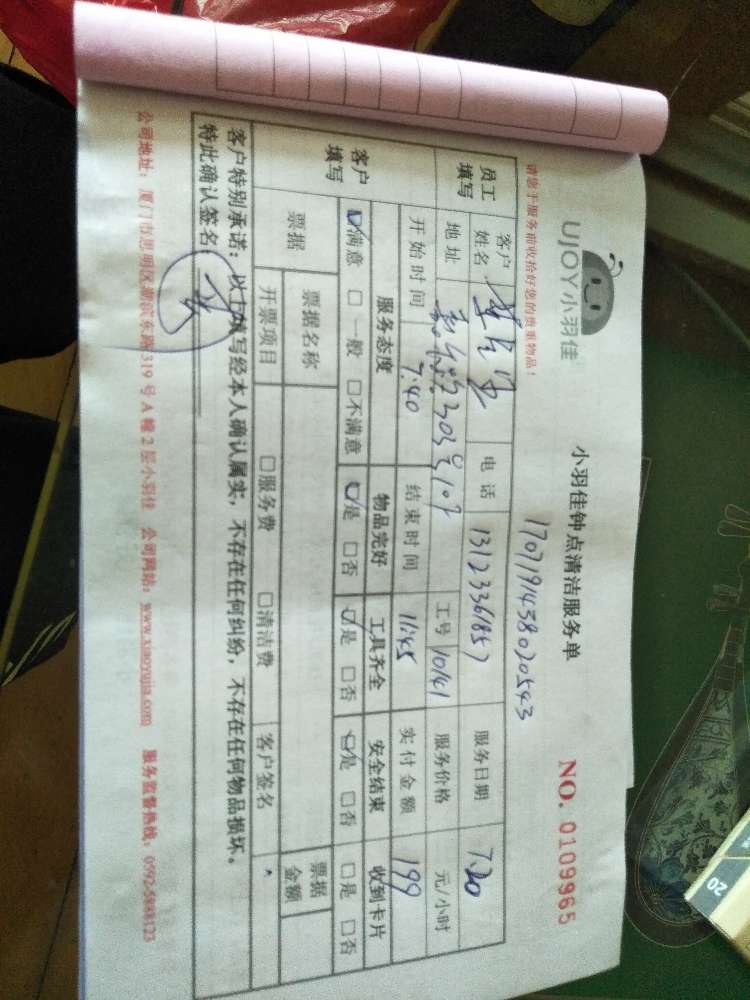 UJOY小羽佳
小羽佳钟点清洁服务单
NO. 0109965
请您于服务前收拾好您的贵重物品！
1707191438020543
员工填写 客户姓名 电话 13123361857 服务日期 7.20
地址 工号 10141 服务价格 元/小时
开始时间 7:40 结束时间 11:45 实付金额 199
客户填写 服务态度 物品完好 工具齐全 安全结束 收到卡片
☑满意 □一般 □不满意 ☑是 □否 ☑是 □否 ☑是 □否 □是 □否
票据 票据名称 票据金额
开票项目 □服务费 □清洁费 客户签名
客户特别承诺：以上填写经本人确认属实，不存在任何纠纷，不存在任何物品损坏。
特此确认签名：
公司地址：厦门市思明区湖滨东路319号A幢2层小羽佳 公司网站：www.xiaoyujia.com 服务监督热线：0592-5888123